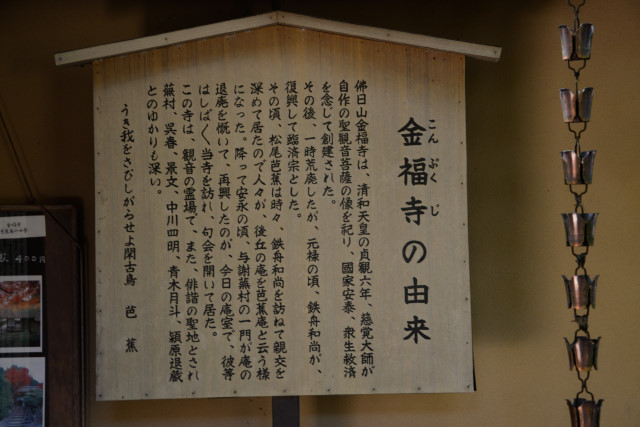 金福寺の由来
こん ぷく じ
佛日山金福寺は、清和天皇の貞観六年、慈覚大師が
自作の聖観音菩薩の像を祀り、國家安泰、衆生救済
を念じて創建された。
その後、一時荒廃したが、元禄の頃、鉄舟和尚が、
復興して臨済宗とした。
その頃、松尾芭蕉は時々、鉄舟和尚を訪ねて親交を
深めて居たので人々が、後丘の庵を芭蕉庵と云う様
になった。降って安永の頃、与謝蕪村の一門が庵の
退廃を慨いて、再興したのが、今日の庵室で、彼等
はしば〱当寺を訪れ、句会を開いて居た。
この寺は、観音の霊場で、また、俳諧の聖地とされ
蕪村、呉春、景文、中川四明、青木月斗、頴原退蔵
とのゆかりも深い。
うき我をさびしがらせよ閑古鳥 芭蕉
400円